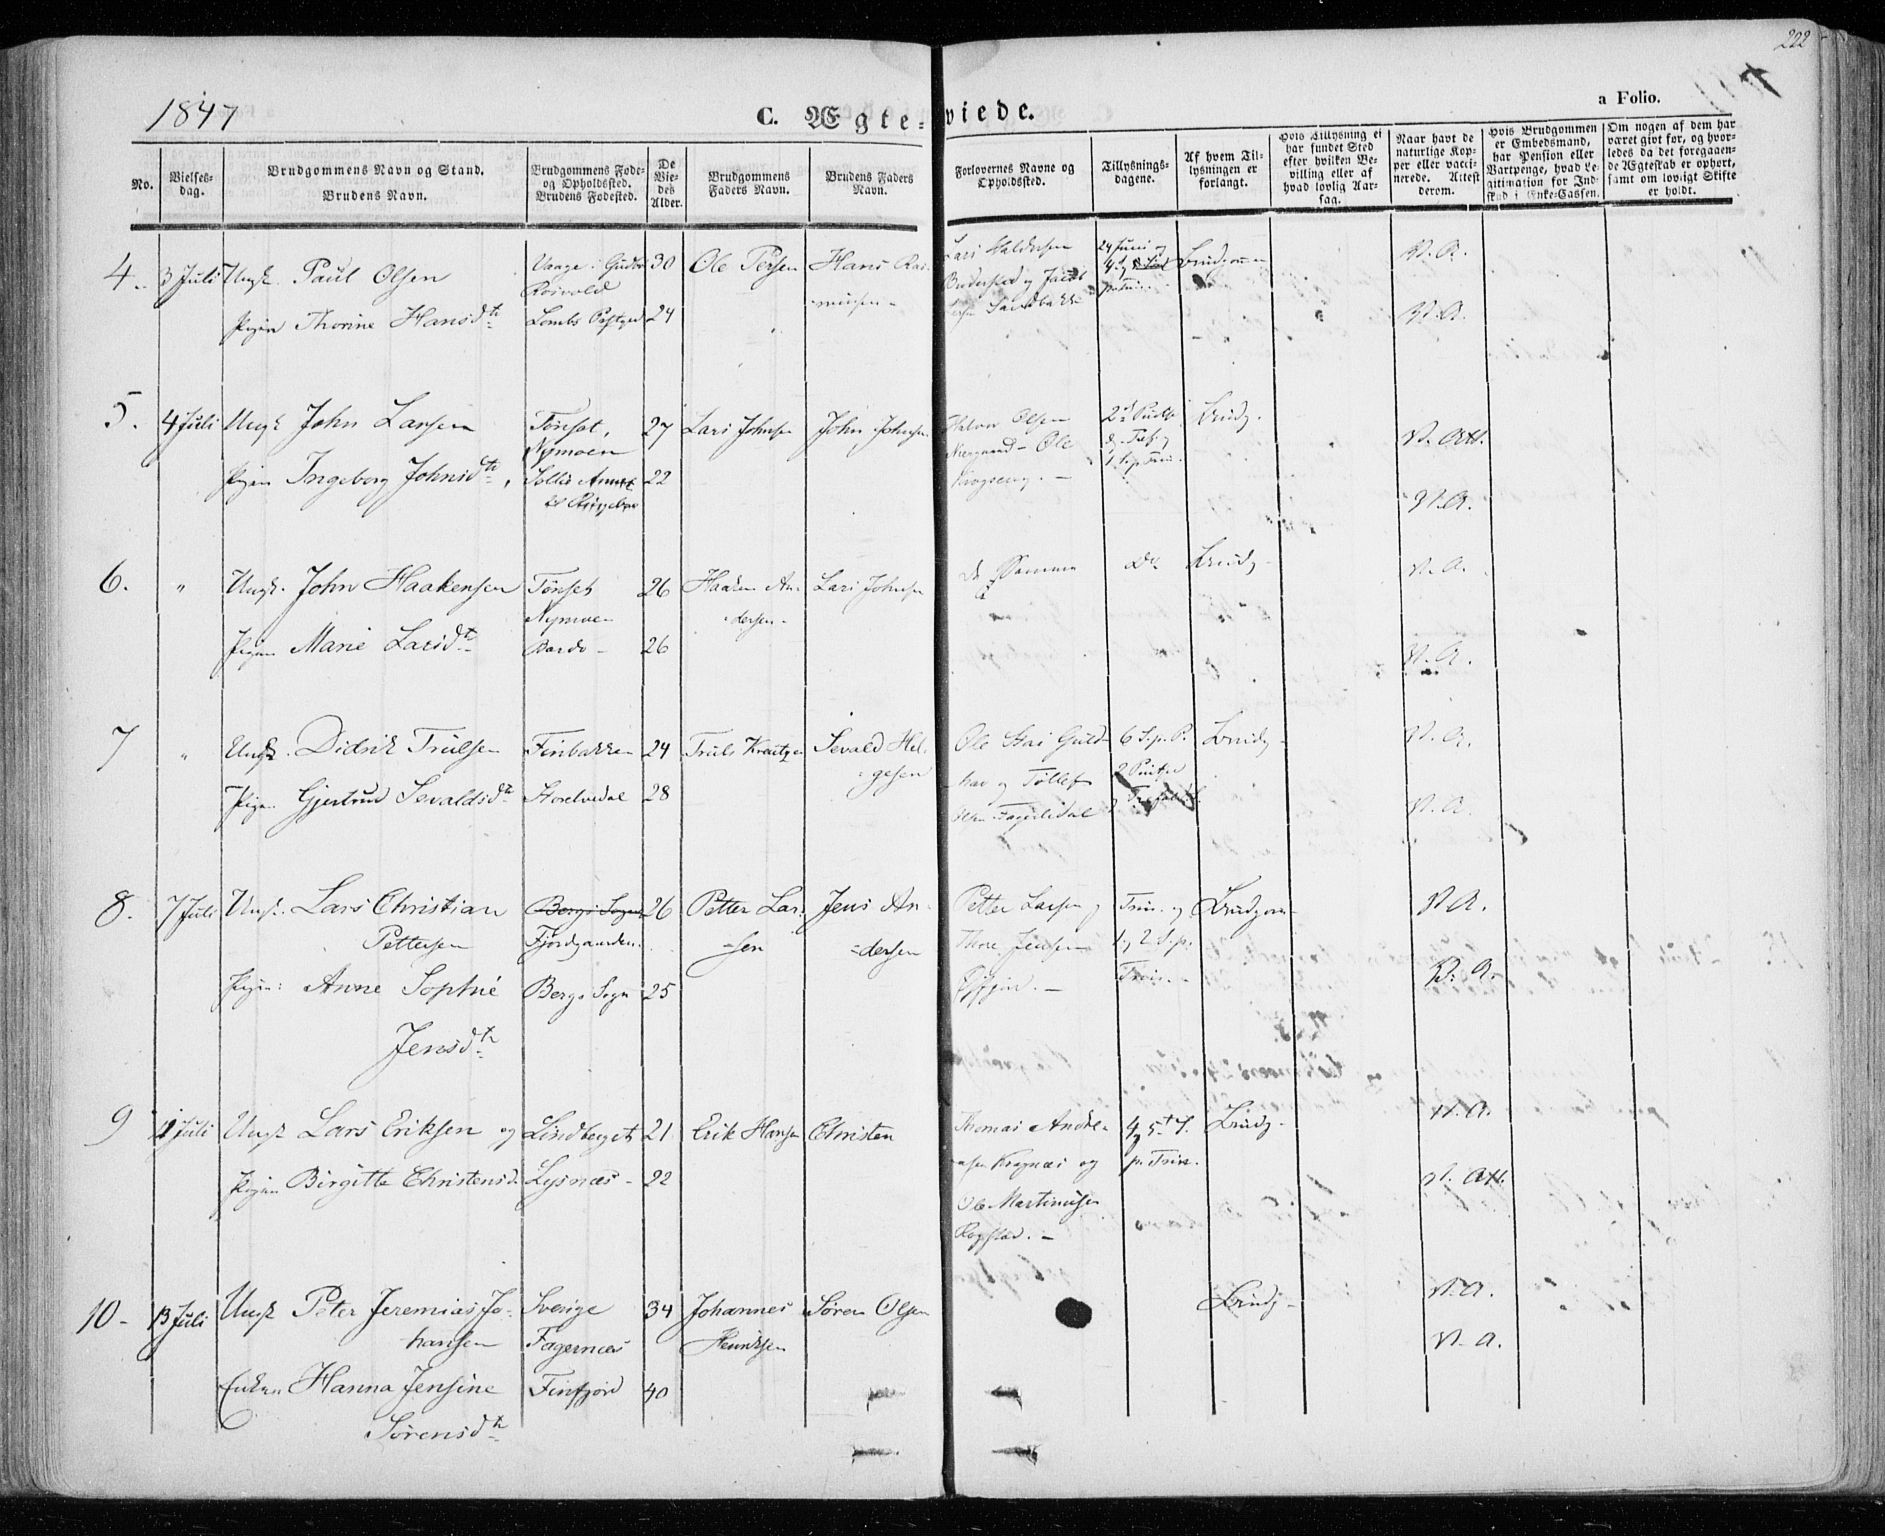 222
1847
C. Ægteviede.
a Folio.
No.
Vielsesdag.
Brudgommens Navn og Stand.
Brudens Navn.
Brudgommens Føde- og Opholdssted.
Brudens Fødested.
De Viedes Alder.
Brudgommens Faders Navn.
Brudens Faders Navn.
Forlovernes Navne og Opholdssted.
Tillysningsdagene.
Af hvem Tillysningen er forlangt.
Hvis Tillysning ei har fundet Sted efter hvilken Bevilling eller af hvad lovlig Aarsag.
Naar havt de naturlige Kopper eller vaccinerede. Attest derom.
Hvis Brudgommen er Embedsmand, har Pension eller Vartpenge, hvad Legitimation for Indskud i Enke-Cassen.
Om nogen af dem har været gift før, og hvorledes da det foregaaende Ægteskab er ophørt, samt om lovligt Skifte er holdt.
4. 3 Juli Ungk. Paul Olsen Vaage i Gudbr 30 Ole Persen Hans Ras- Lars Haldersen 24 Juni og Brudgommen V. A.
Rosvold musen
Pigen Thorine Hansdtr Lombs Præstgjed 24 V. A.
5. 4 Juli Ungk John Larsen Tønset, 27 Lars Johnsen John Johnsen Halvor Olsen 2d Pintsed Brudg. V. Att.
Nymoen Ole
Pigen Ingeborg Johnsdtr, Sollie Annex 22 V. A.
til Ringeboe
6. " Ungk. John Haakensen Tønset 26 Haaken An- Lars Johnsen de Samme Do Brudg. V. A.
Nymoe dersen
Pigen Marie Larsdtr Bardo 26 V. A.
7 " Ungk. Didrik Trulsen Finbakken 24 Truls Kreutzen Sevald Hel- Ole 6 S. p. P. Brudg V. A.
gesen hav og Tollef 2 Pintsed
Pigen Gjertrud Sevaldsdtr Storelvedal 28 V. A.
8. 7 Juli Ungk. Lars Christian Bergs Sogn 26 Petter Lar- Jens An- Petter Larsen og Trin. og Brudgom V. A.
Pettersen Fjordgaarden. sen dersen Thore Jensen 1 og 2 S. p.
Pigen: Anne Sophie Bergs Sogn 25 Trin. V. A.
Jensdtr
9 11 Juli Ungk Lars Eriksen og Lindberget 21 Erik Hansen Christen Thomas Andre- 4 og 5te S. Brudg. V. A.
Pigen Birgitte Christensd Lysnæs 22 asen Kragnæs og p. Trin. V. Att.
Ole Martinusen
Rogstad.
10 13 Juli Ungk Peter Jeremias Jo- Sverige 34 Johannes Søren Olsen Brudg V. A.
hansen Fagernæs Henriksen V. A.
Enken Hanna Jensine Finfjord 40
Sørensdtr